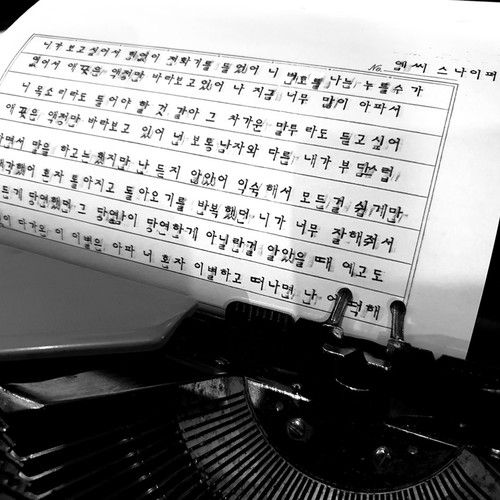 No. 엠씨 스나이퍼
니가 보고싶어서 하염없이 전화기를 들었어 니 번호를 나는 누를수가
없어서 애꿎은 액정만 바라보고있어 나 지금 너무 많이 아파서
니 목소리라도 들어야 할 것 같아 그 차가운 말투라도 듣고싶어
애꿎은 액정만 바라보고 있어 넌 보통남자와 다른 내가 부담스럽
다면서 말을 하고는 했지만 난 듣지 않았어 익숙해서 모든걸 쉽게만
생각했어 혼자 돌아지고 돌아오기를 반복했던 니가 너무 잘해줘서
든게 당연했던 그 당연함이 당연한게 아닐란걸 알았을 때 예고도
이 다가온 이 이별은 아파 니 혼자 이별하고 떠나면 나 어떡해